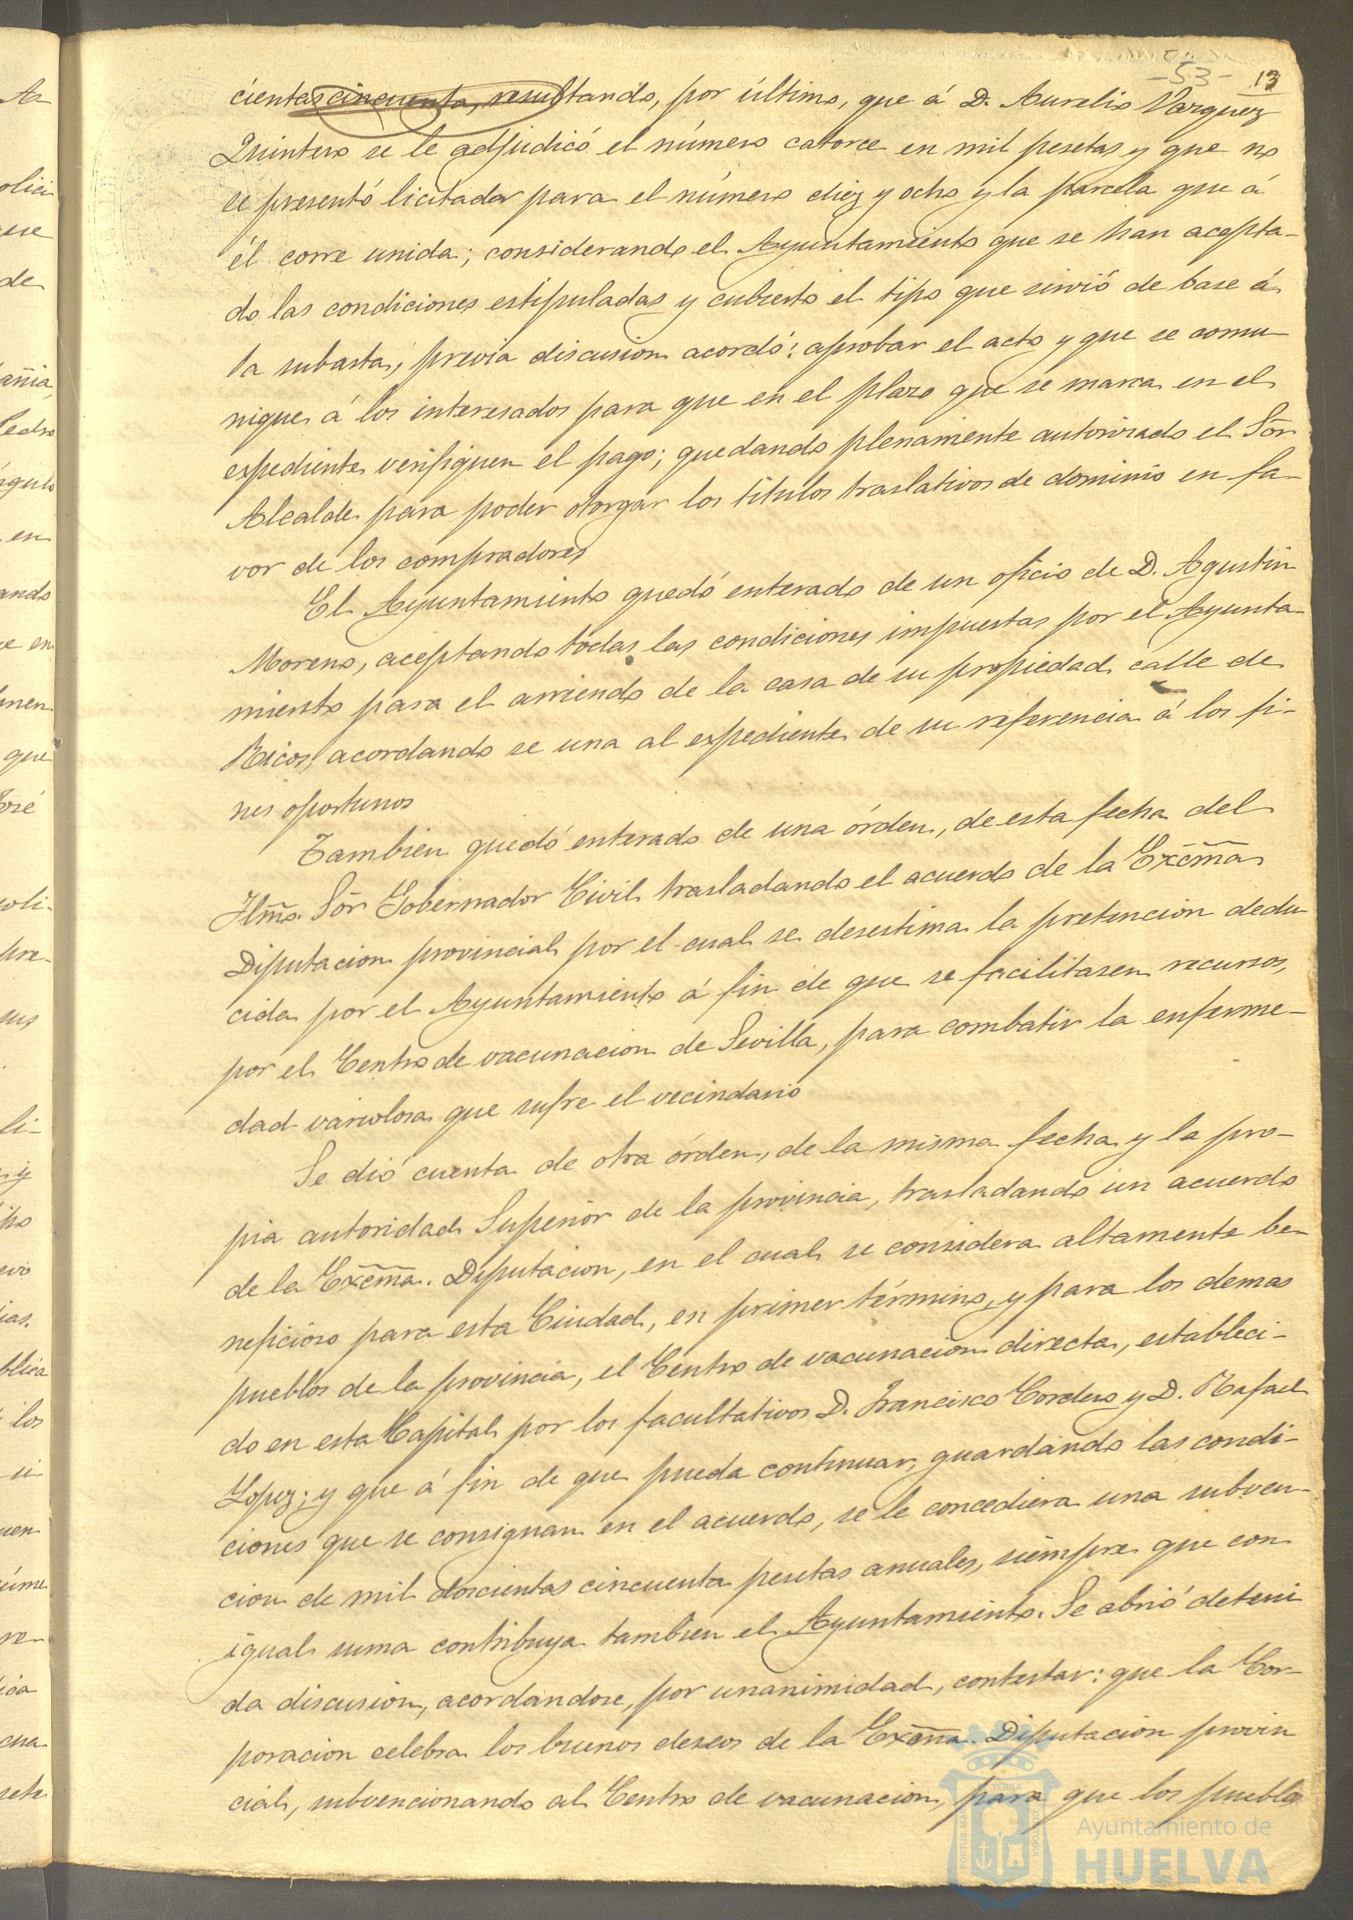 -53- 13
cientas cincuenta, resultando, por último, que á D. Aurelio Vazquez
Quintero se le adjudicó el número catorce en mil pesetas y que no
se presentó licitador para el número diez y ocho y la parcela que á
él corre unida; considerando el Ayuntamiento que se han acepta-
do las condiciones estipuladas y cubierto el tipo que sirvió de base á
la subasta, previa discusion acordó: aprobar el acto y que se comu-
nique á los interesados para que en el plazo que se marca en el
expediente verifiquen el pago; quedando plenamente autorizado el Sõr
Alcalde para poder otorgar los titulos traslativos de dominio en fa-
vor de los compradores
El Ayuntamiento quedó enterado de un oficio de D. Agustin
Moreno, aceptando todas las condiciones impuestas por el Ayunta-
miento para el arriendo de la casa de su propiedad calle de
Ricos, acordando se una al expediente de su referencia á los fi-
nes oportunos
Tambien quedó enterado de una órden, de esta fecha del
Ilm̃o. Sõr Gobernador Civil trasladando el acuerdo de la Exc̃m̃a
Diputacion provincial por el cual se desestima la pretencion dedu
cida por el Ayuntamiento á fin de que se facilitasen recursos,
por el Centro de vacunacion de Sevilla, para combatir la enferme-
dad variolosa que sufre el vecindario
Se dió cuenta de otra órden, de la misma fecha y la pro-
pia autoridad Superior de la provincia, trasladando un acuerdo
de la Exc̃m̃a. Diputacion, en el cual se considera altamente be-
neficioso para esta Ciudad, en primer término, y para los demas
pueblos de la provincia, el Centro de vacunacion directa, estableci-
do en esta Capital por los facultativos D. Francisco Cordero y D. Rafael
Lopez; y que á fin de que pueda continuar, guardando las condi-
ciones que se consignan en el acuerdo, se le concediera una subven-
cion de mil doscientas cincuenta pesetas anuales, siempre que con
igual suma contribuya tambien el Ayuntamiento. Se abrió deteni
da discusion, acordandose, por unanimidad, contestar: que la Cor-
poracion celebra los buenos deseos de la Exc̃m̃a. Diputacion provin
cial, subvencionando al Centro de vacunacion, para que los pueblos
Ayuntamiento de
HUELVA